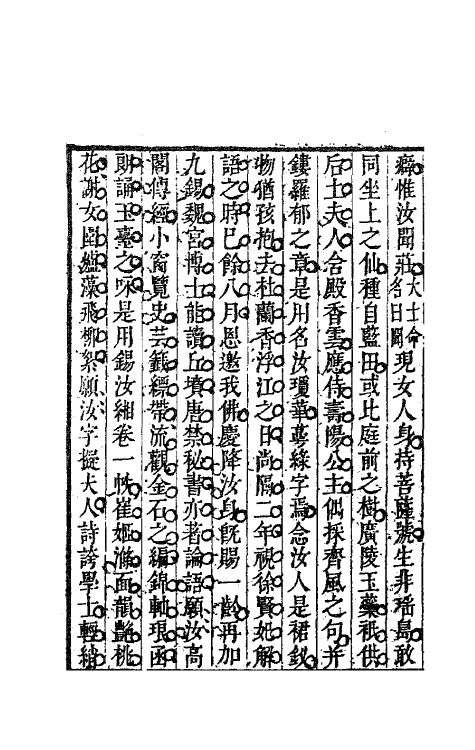 癖惟汝聞莊大士命名曰聞現女人身持菩薩號生非瑤島敢
同坐上之仙種自藍田或比庭前之樹廣陵玉蘂祇供
后土夫人合殿香雲應侍壽陽公主偶採齊風之句并
鏤羅郁之章是用名汝瓊華蕚綠字焉念汝人是裙釵
物猶孩抱去杜蘭香浮江之日尚隔二年視徐賢妃解
語之時已餘八月恩邀我佛慶降汝身旣賜一齡再加
九錫魏宮博士能讀丘墳唐禁秘書亦著論語願汝高
閣傳經小窗覽史芸籤縹帶流觀金石之編錦軸琅函
則誦玉臺之咏是用錫汝緗卷一帙崔姬滌面龍艷桃
花謝女圍蘊藻飛柳絮願汝字擬夫人詩誇學士輕綃